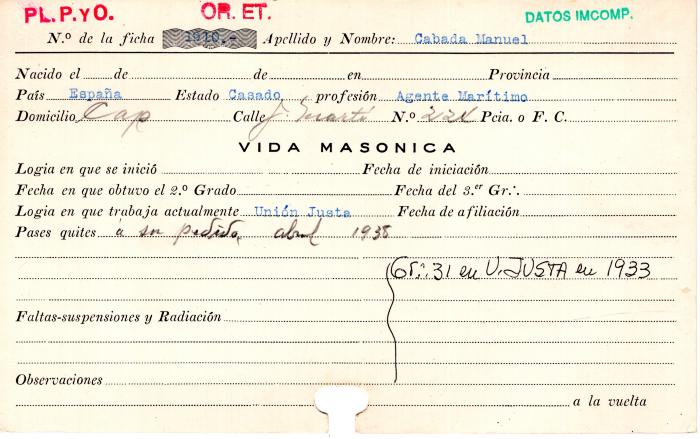 PL. P. YO. OR. ET. DATOS IMCOMP.
N.º de la ficha 1910.- Apellido y Nombre: Cabada Manuel
Nacido el de de en Provincia
País España Estado Casado profesión Agente Marítimo
Domicilio Cap Calle J. N.º Pcia. o F. C.
VIDA MASONICA
Logia en que se inició Fecha de iniciación
Fecha en que obtuvo el 2.º Grado Fecha del 3.er Gr∴
Logia en que trabaja actualmente Unión Justa Fecha de afiliación
Pases quites a su pedido, abril 1938
Gr∴ 31 en U. JUSTA en 1933
Faltas-suspensiones y Radiación
Observaciones
a la vuelta